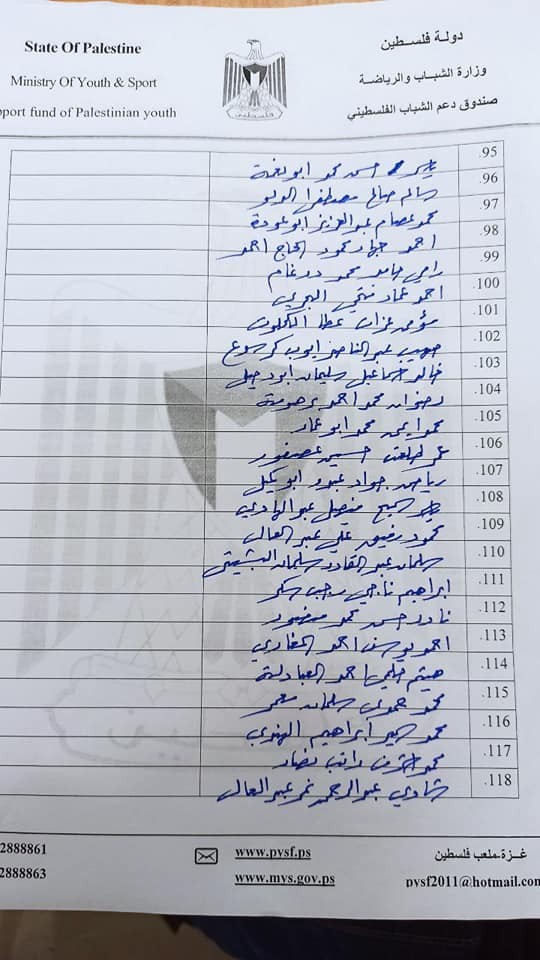 State Of Palestine
Ministry Of Youth & Sport
pport fund of Palestinian youth
دولة فلسطين
وزارة الشباب والرياضة
صندوق دعم الشباب الفلسطيني
فلسطين
.95 حسن محمد ابو نعمة
.96 سالم صالح مصطفى
.97 محمد عصام عبد العزيز ابو عودة
.98 احمد جهاد محمود الحاج احمد
.99 رامي حامد محمد ضرغام
.100 احمد عماد فتحي
.101 مؤمن عزات عطا
.102 صهيب عبد الناصر ايوب كرسوع
.103 خالد اسماعيل سليمان ابو دحيل
.104 رضوان محمد احمد برهومة
.105 محمد ايمن محمد ابو عمار
.106 طلعت حسين عصفور
.107 رياض جواد عبد ابو كميل
.108 عبد الهادي
.109 محمود رفيق علي عبد العال
.110 سلمان عبد القادر سلمان البشيتي
.111 ابراهيم ناجي رجب سكر
.112 نادر حسن محمد منصور
.113 احمد يوسف احمد المغاري
.114 هيثم حلمي احمد العبادلة
.115 محمد حموي سلمان معمر
.116 محمد ابراهيم الهندي
.117 محمد اشرف راتب نصار
.118 شادي عبد الرحمن نمر عبد العال
2888861
2888863
www.pvsf.ps
www.mys.gov.ps
غزة-ملعب فلسطين
pvsf2011@hotmail.com